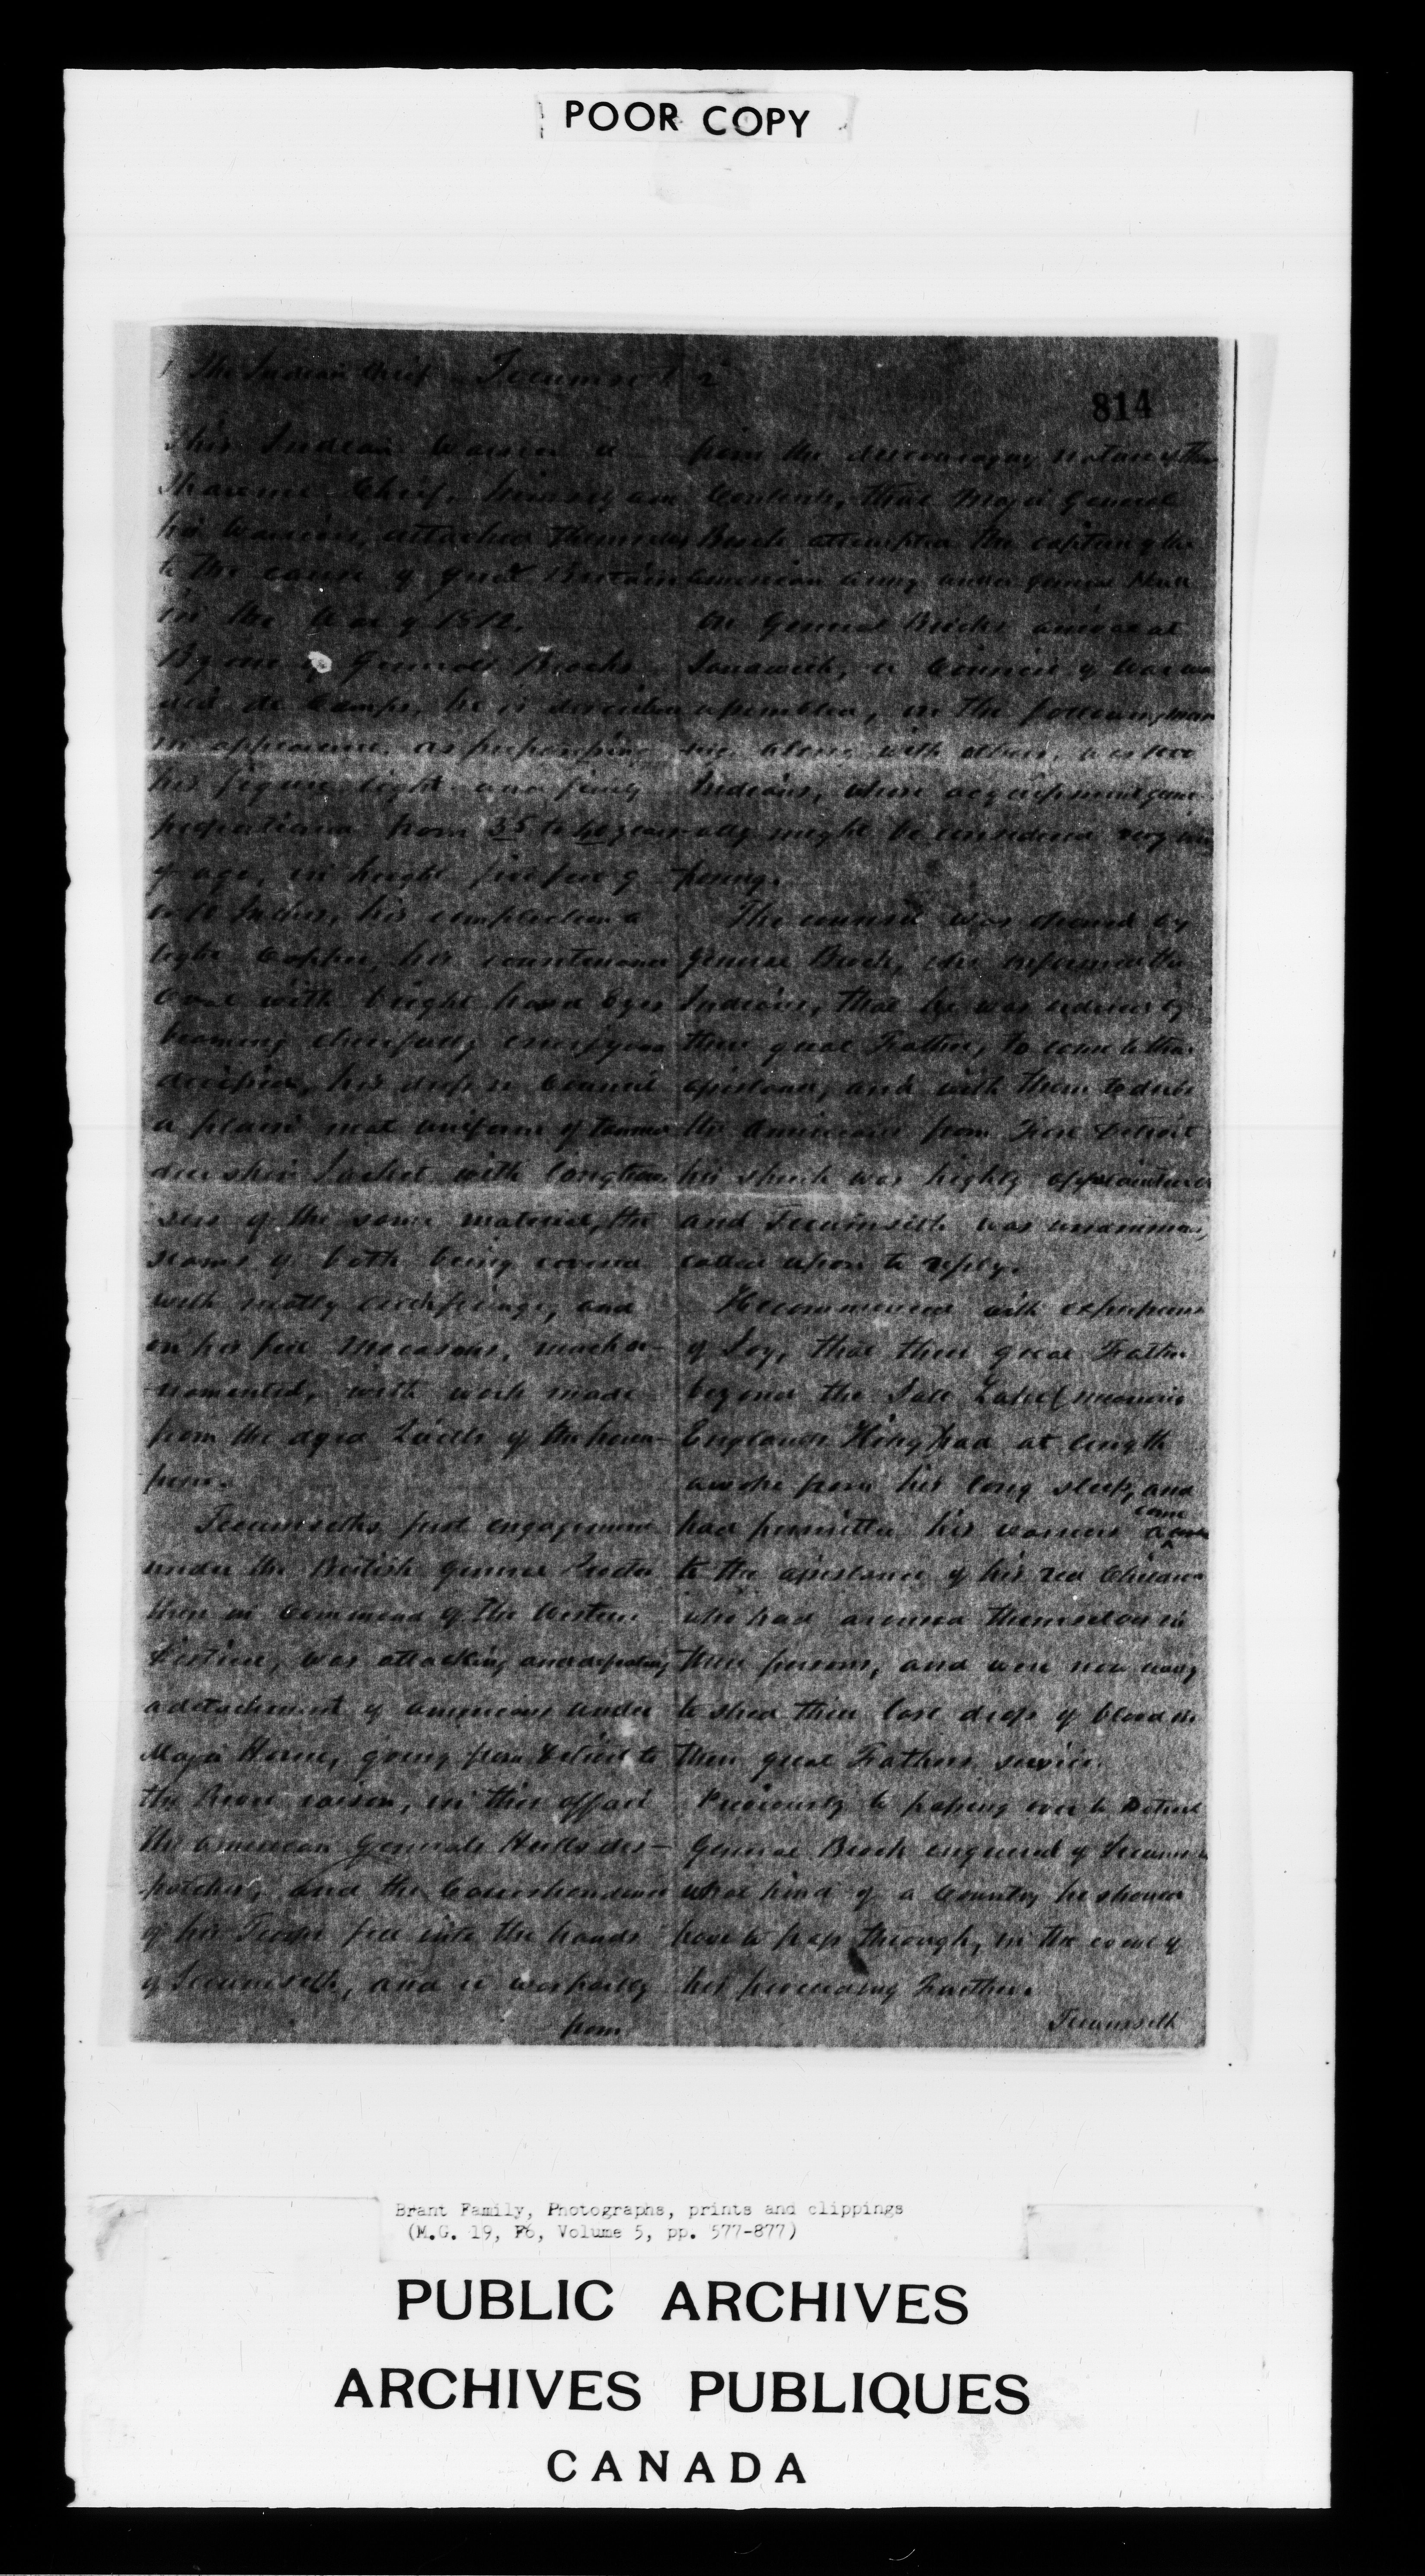 POOR COPY
1 The Indian Chief Tecumseth 2
814
This Indian Warrior a
Shawnee Chief, having and
his Warriors, attached themselves
to the cause of Great Britain
in the War of 1812.
By one of General Brocks
aid de Camps, he is described
in appearance, as prepossessing
his figure light and finely
proportioned from 35 to 40 years
of age, in height five feet 9
or 10 Inches, his complexion a
light Copper, his countenance
Oval with bright hazel Eyes
beaming cheerfully, energy and
decision, his dress in Council
a plain neat uniform of Tanned
deer skin Jacket with long trow
sers of the same material, the
seams of both being covered
with neatly cut fringe, and
on his feet Moccasons, much or-
namented, with work made
from the dyed Quills of the porcu-
pine.
Tecumseths first engagement
under the British General Procter
then in Command of the Western
District, was attacking and defeating
a detachment of Americans under
Major Horne, going from Detroit to
the River raisin, in this affair
the American Generals Hulls des-
patches, and the Correspondence
of his Troops fell into the hands
of Tecumseth, and it was partly
from
from the discouraging nature of their
Contents, that Major General
Brock attempted the capture of the
American army under General Hull
On General Brocks arrival at
Sandwich, a Council of War was
assembled, on the following morn
ing along with others, was 1000
Indians, whose equipment gener
ally might be considered very im
posing.
The council was opened by
General Brock, who informed the
Indians, that he was ordered by
their great Father, to come to their
assistance, and with them to drive
the Americans from Fort Detroit
his speech was highly applauded
and Tecumseth was unanimously
called upon to reply.
He commenced with expressions
of Joy, that their great Father
beyond the Salt Lake (meaning
Englands King) had at length
awoke from his long sleep, and
had permitted his warriors come
to the assistance of his red Children
who had themselves in
their persons, and were now ready
to shed their last drop of blood in
their great Fathers service.
Previously to passing over to Detroit
General Brock enquired of Tecumseth
what kind of a Country he should
have to pass through, in the event of
his proceeding Further.
Tecumseth
Brant Family, Photographs, prints and clippings
(M.G. 19, F6, Volume 5, pp. 577-877)
PUBLIC ARCHIVES
ARCHIVES PUBLIQUES
CANADA